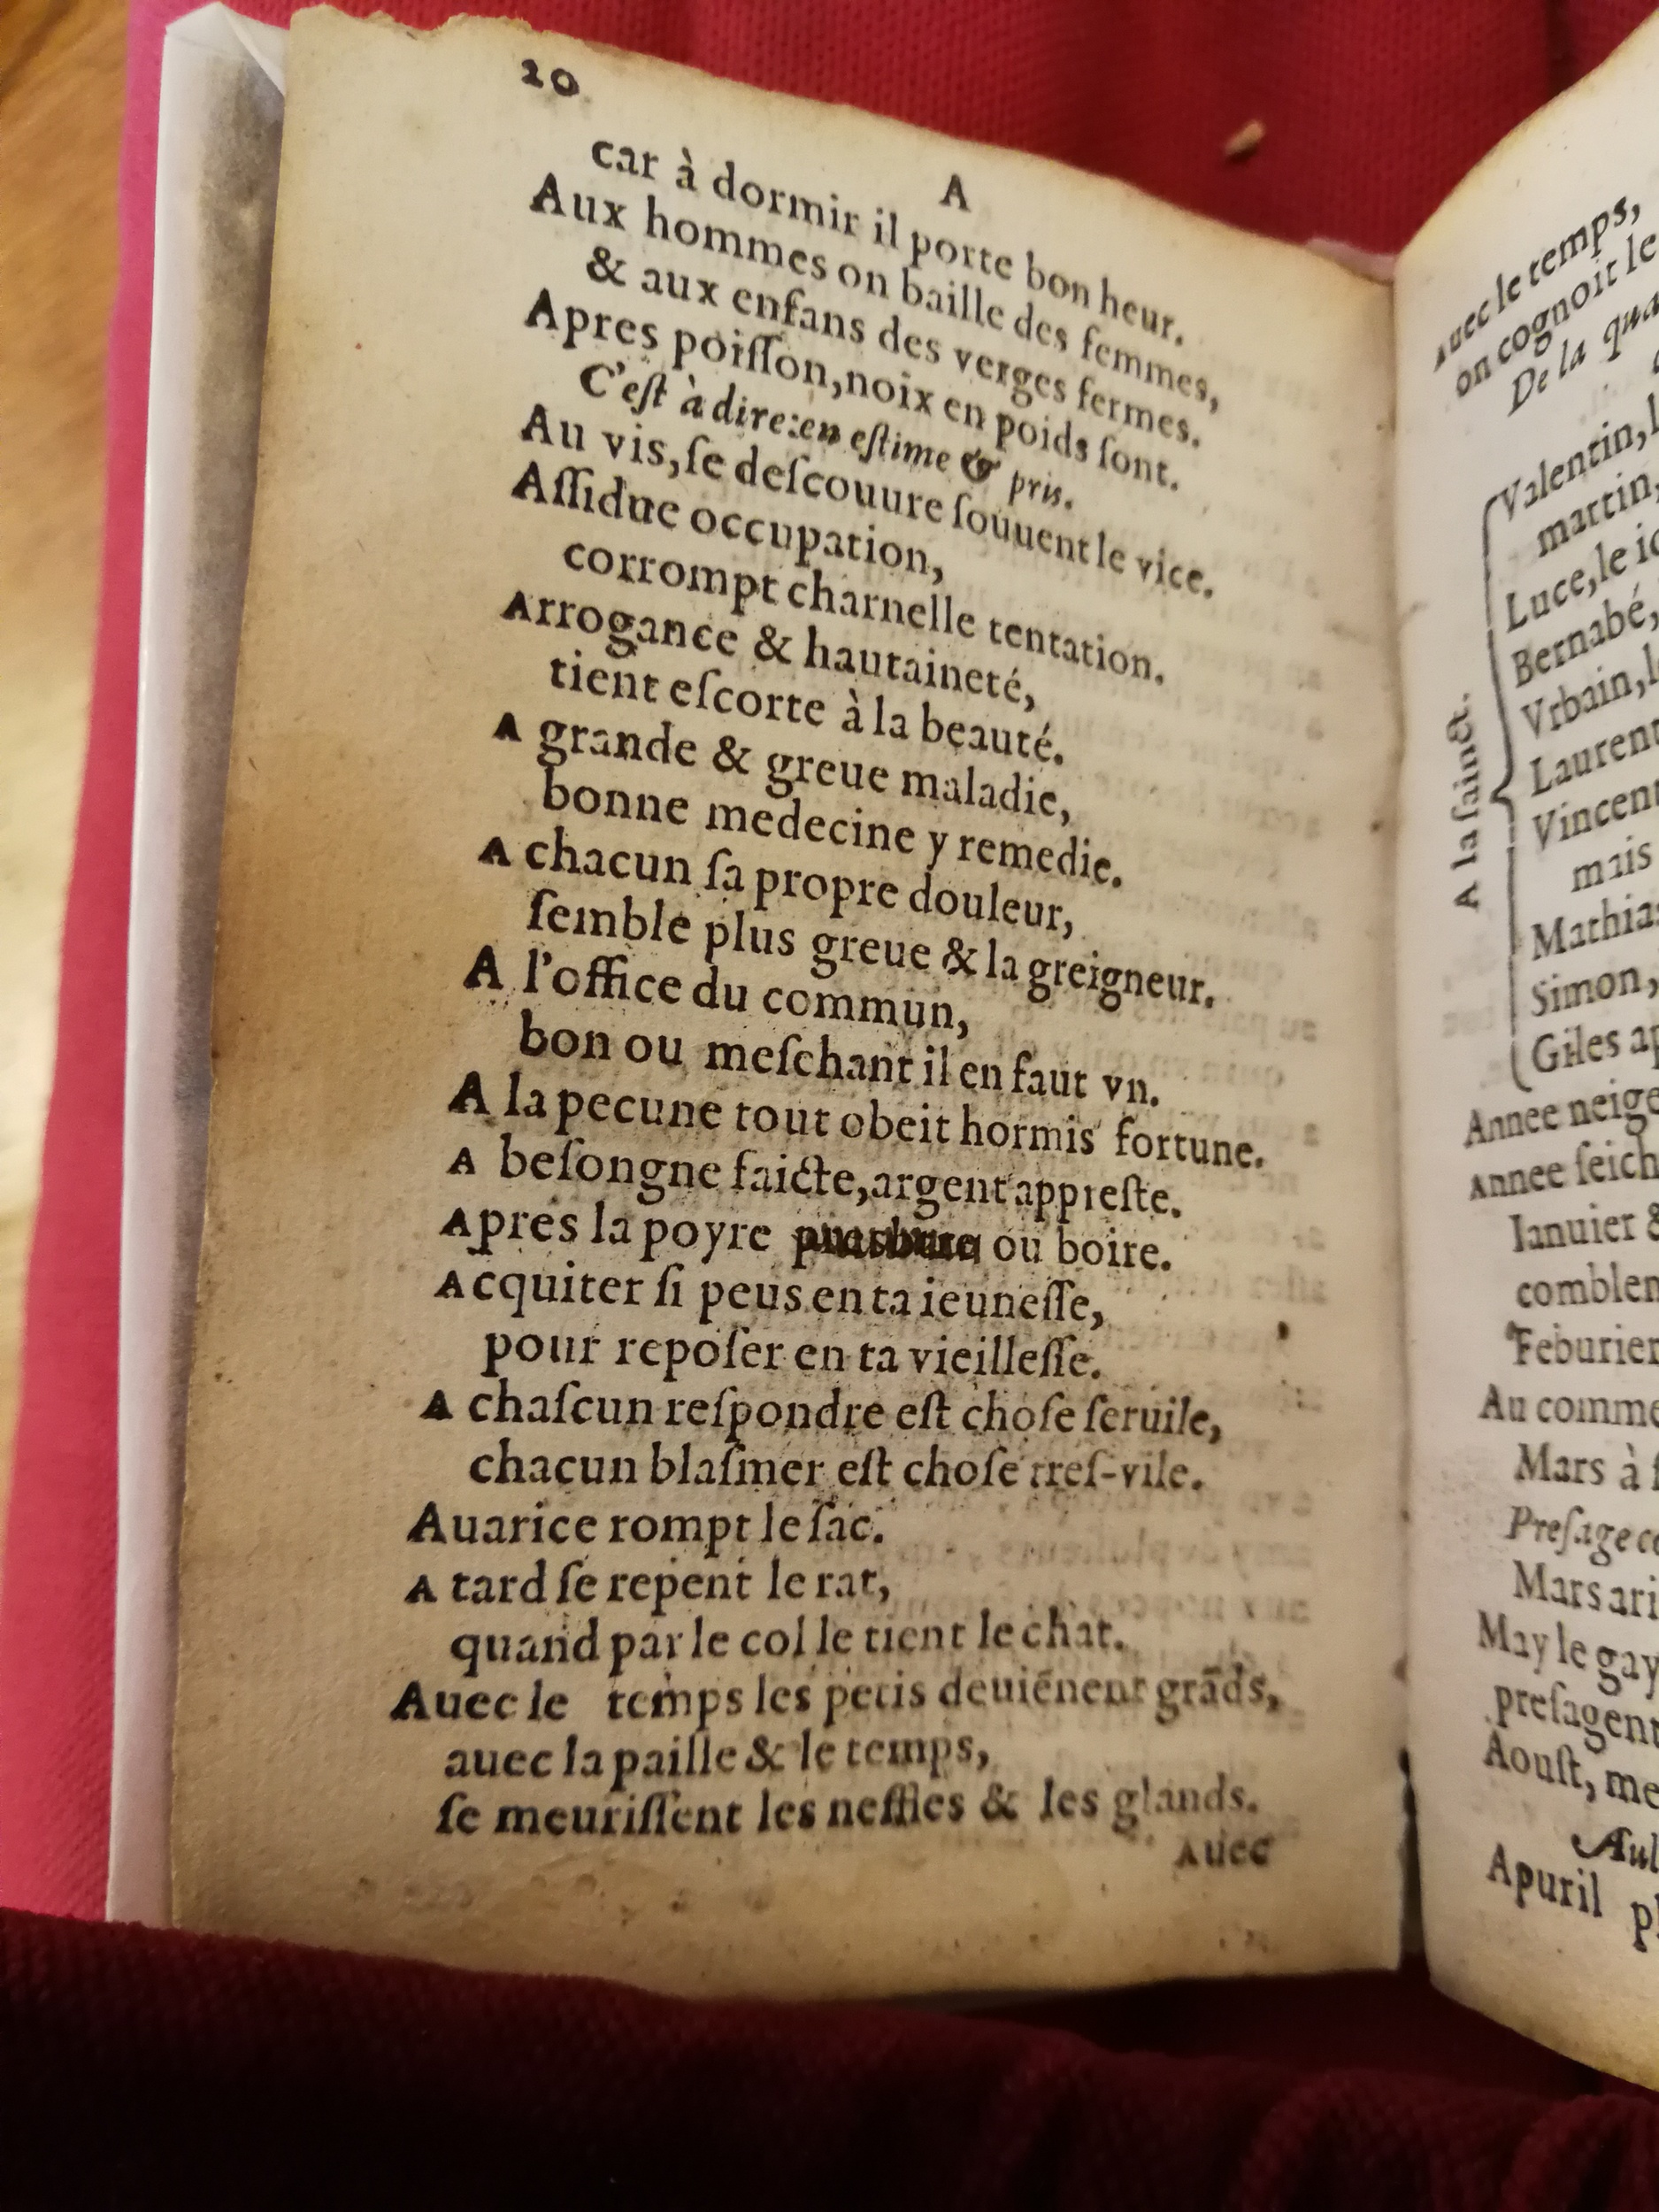 20
A
car à dormir il porte bon heur.
Aux hommes on baille des femmes,
& aux enfans des verges fermes.
Apres poiſſon,noix en poids ſont.
C'eſt à dire:en eſtime & pris.
Au vis,ſe deſcouure ſouuent le vice.
Aſſidue occupation,
corrompt charnelle tentation.
Arrogance & hautaineté,
tient eſcorte à la beauté.
A grande & greue maladie,
bonne medecine y remedie.
A chacun ſa propre douleur,
ſemble plus greue & la greigneur.
A l'office du commun,
bon ou meſchant il en faut vn.
A la pecune tout obeit hormis fortune.
A beſongne faicte,argent appreſte.
Apres la poyre ou boire.
Acquiter ſi peus en ta ieuneſſe,
pour repoſer en ta vieilleſſe.
A chaſcun reſpondre eſt choſe ſeruile,
chacun blaſmer eſt choſe treſ-vile.
Auarice rompt le ſac.
A tard ſe repent le rat,
quand par le col le tient le chat.
Auec le temps les petis deuiēnent grāds,
auec la paille & le temps,
ſe meuriſſent les neffles & les glands.
Auec
Auec le temps,
on cognoit le
De la qua
Valentin,
martin,
Luce,le
Bernabé,
Vrbain,
Laurent
Vincent
mais
Mathias
Simon,
Giles
A la ſainct.
Annee neige
Annee ſeich
Ianuier &
comblen
Feburier
Au comme
Mars à
Preſage
Mars ari
May le gay
preſagent
Aouſt, me
Apuril